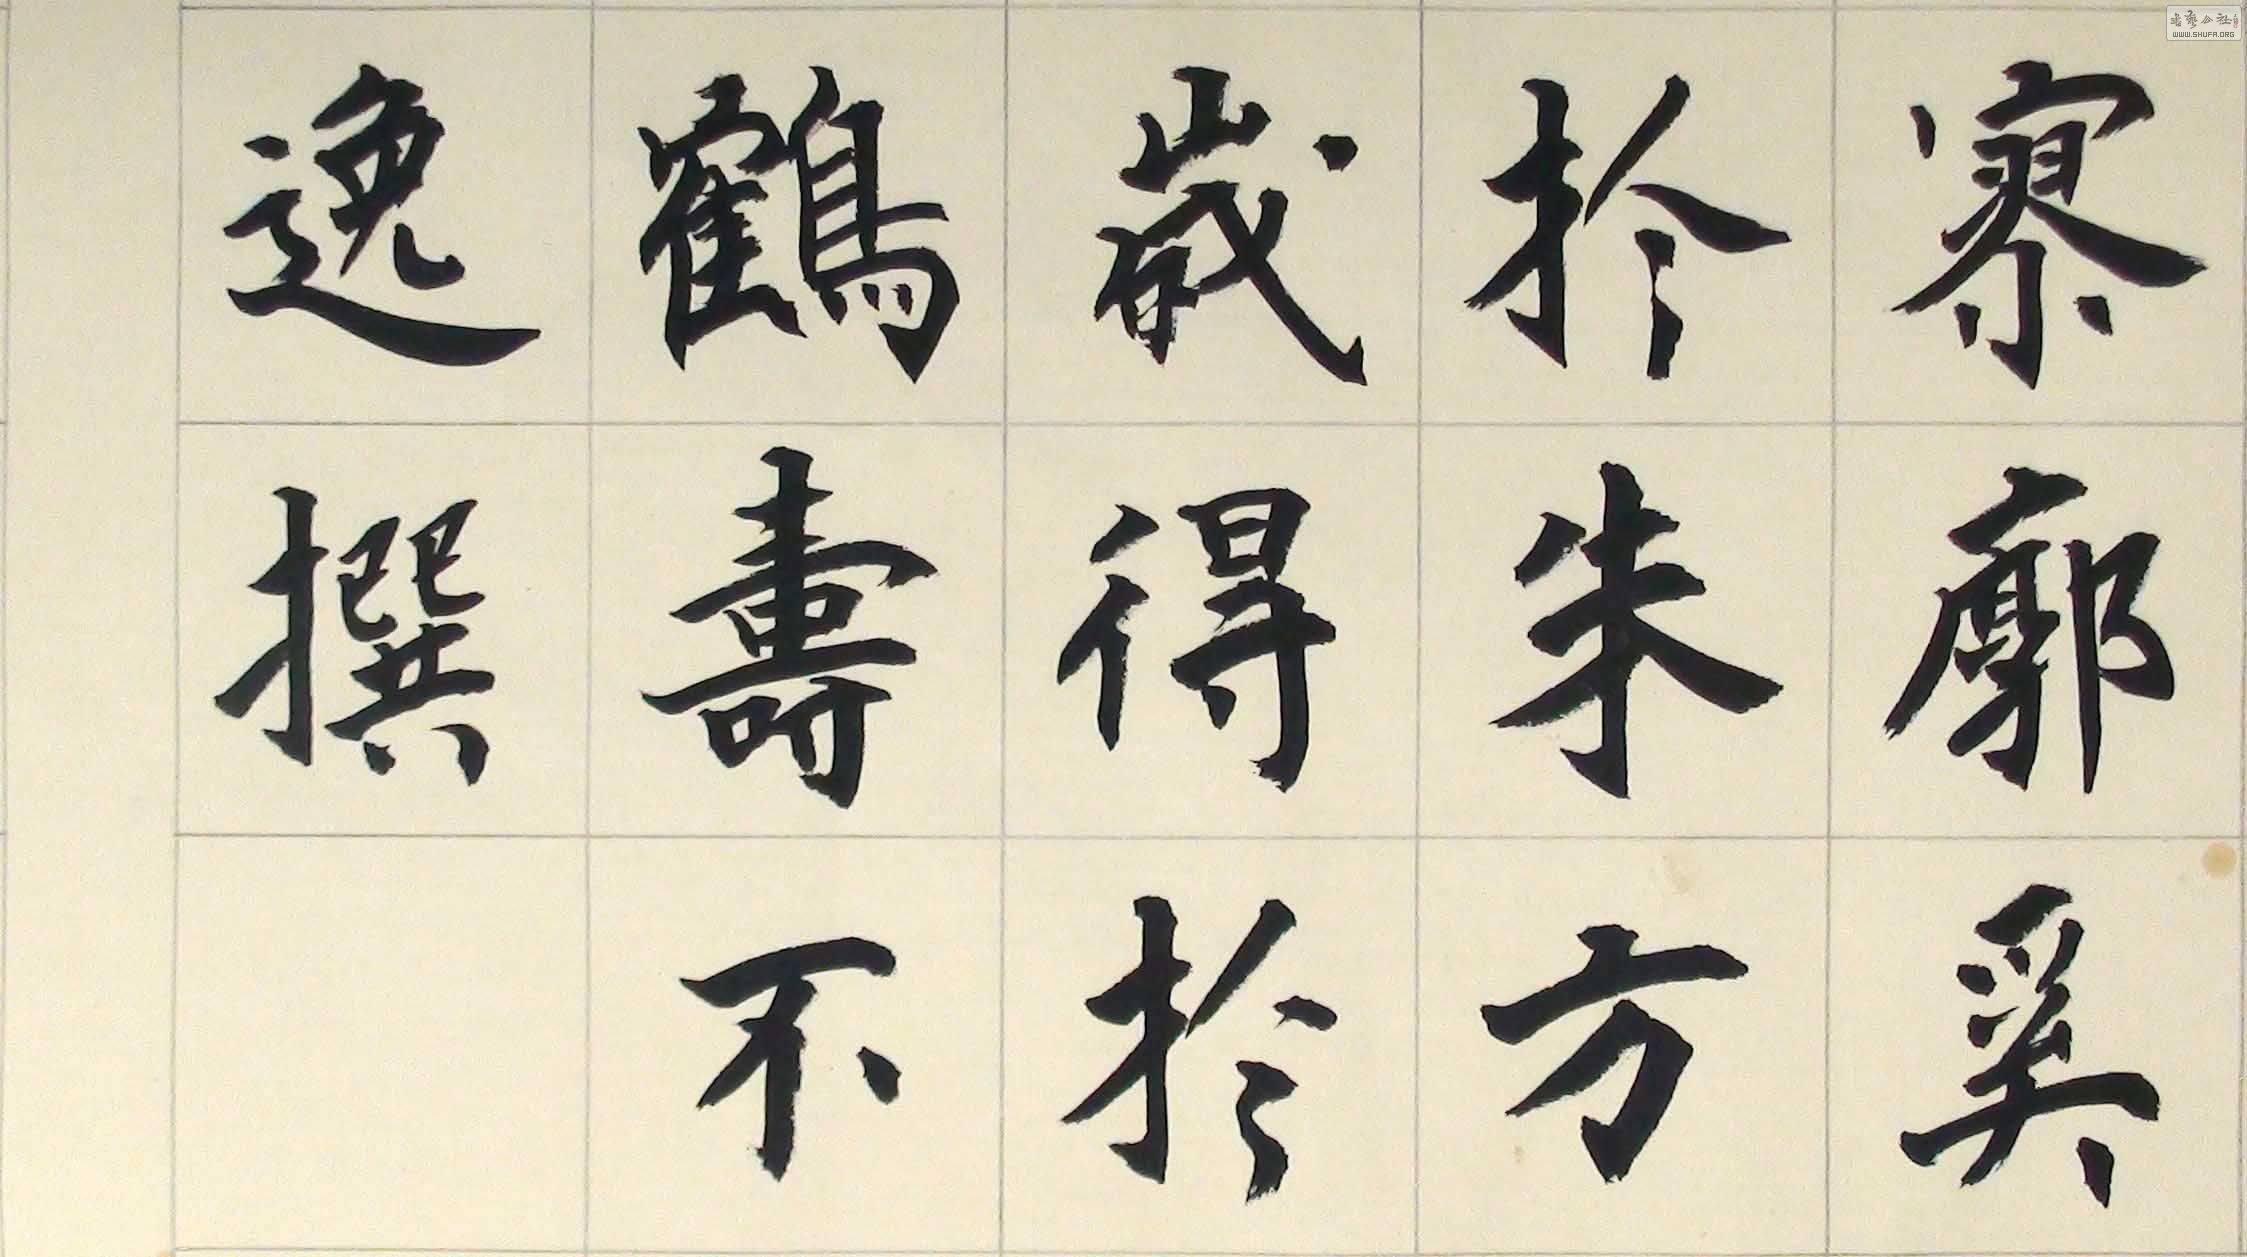 逸撰
鶴壽不
歲得於
於朱方
寥廓奚
书艺公社
WWW.SHUFA.ORG